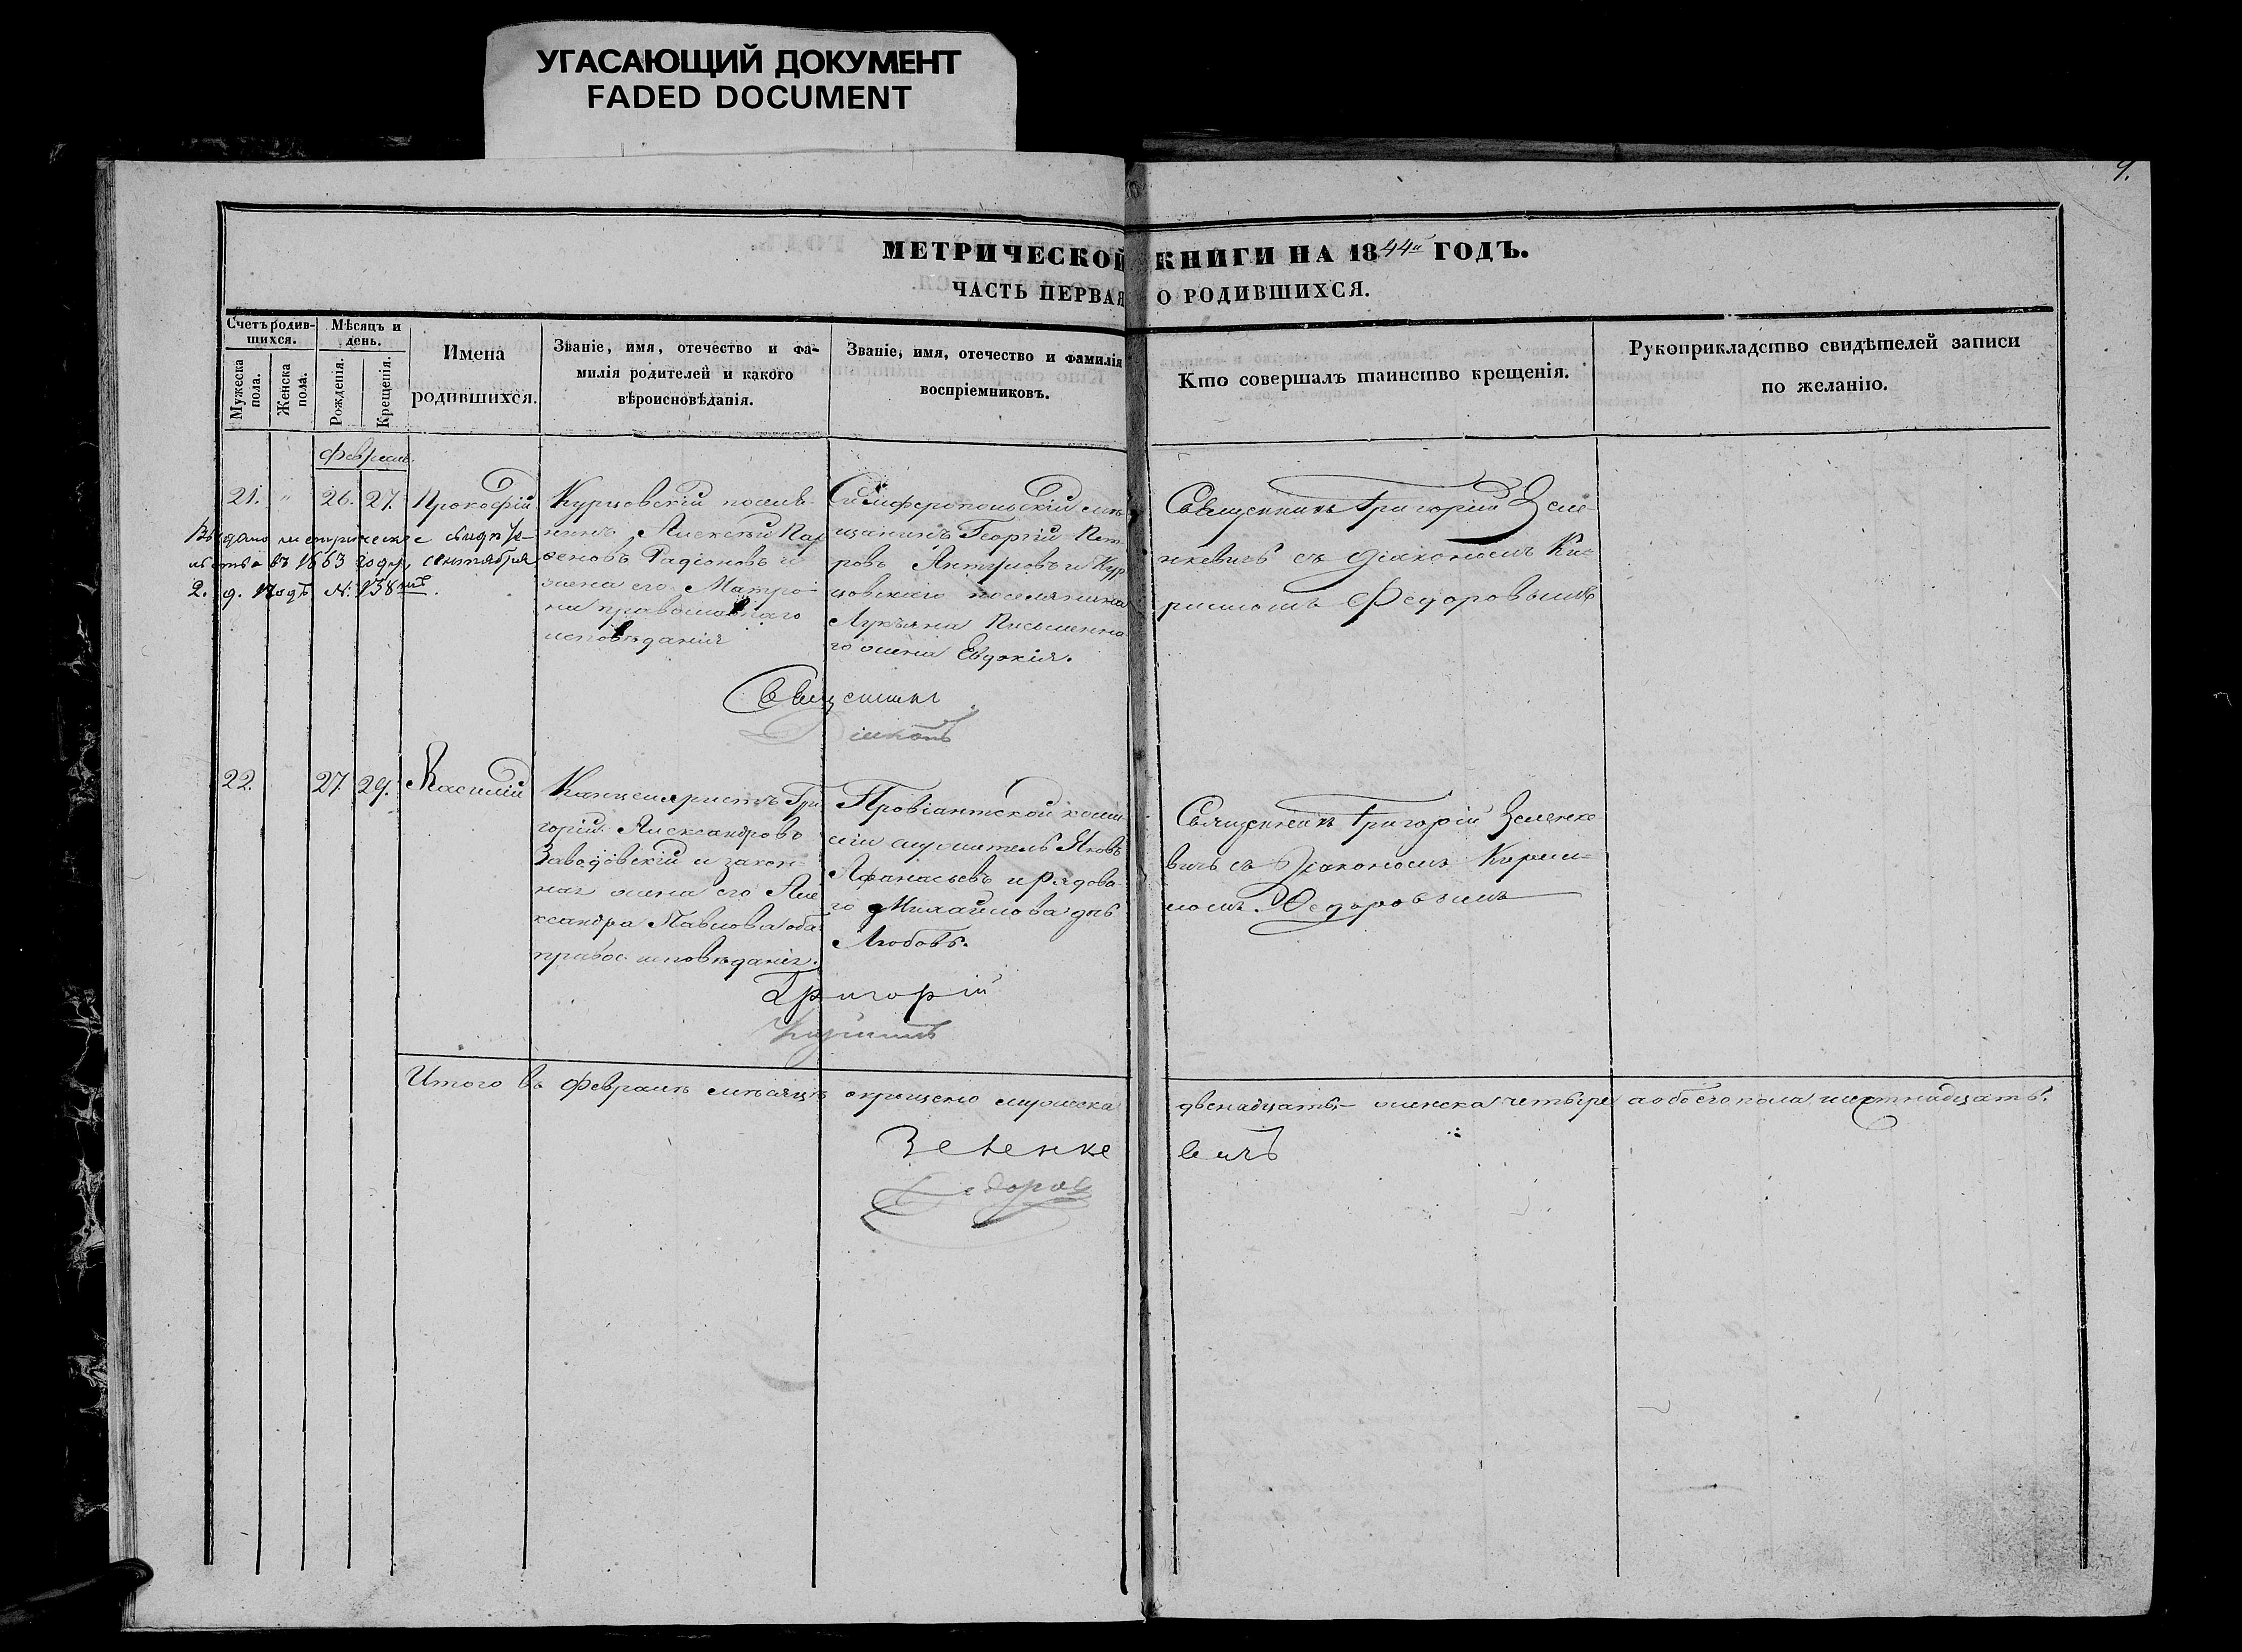 УГАСАЮЩИЙ ДОКУМЕНТ
FADED DOCUMENT
9.
МЕТРИЧЕСКОЙ КНИГИ НА 1844й ГОДЪ.
ЧАСТЬ ПЕРВАЯ О РОДИВШИХСЯ.
Счетъ родив-
шихся.
Мужеска
пола.
Женска
пола.
Мѣсяцъ и
день.
Рожденія.
Крещенія.
Имена
родившихся.
Званіе, имя, отечество и фа-
милія родителей и какого
вѣроисновѣданія.
Званіе, имя, отечество и фамилія
воспріемниковъ.
Кто совершалъ таинство крещенія.
Рукоприкладство свидѣтелей записи
по желанію.
Февраль.
21. " 26. 27. Прокофій
Выдано метрическое свидѣте-
льство въ 1863 году, сентября
2. д. подъ N. 138мъ.
Курцовскій поселя-
нинъ Алексѣй Пар
феновъ Радіоновъ и
жена его Матро-
на православнаго
исповѣданія
Симферопольскій мѣ
щанинъ Георгій Пет
ровъ и Кур
цовскаго поселянина
Лукьяна Письменна
го жена Евдокія.
Священникъ Григорій Зеле-
нкевичъ съ Діакономъ Ки-
рилломъ Федоровымъ
Священникъ
Діаконъ
22. 27. 29. Василій
Канцеляристъ Гри
горій Александровъ
Заводовскій и закон-
ная жена его Але
ксандра Павлова оба
правос. исповѣданія.
Провіантской комми
сіи служитель Яковъ
Афанасьевъ и рядова
го Михайлова дъ
Любовь.
Священникъ Григорій Зеленке
вичъ съ Діакономъ Кирил-
ломъ Федоровымъ
Григорій
Кириллъ
Итого въ февралѣ мѣсяцѣ окрещено мужеска двенадцать, женска четыре а обоего пола шестнадцать.
Зеленке вичъ
Федоров